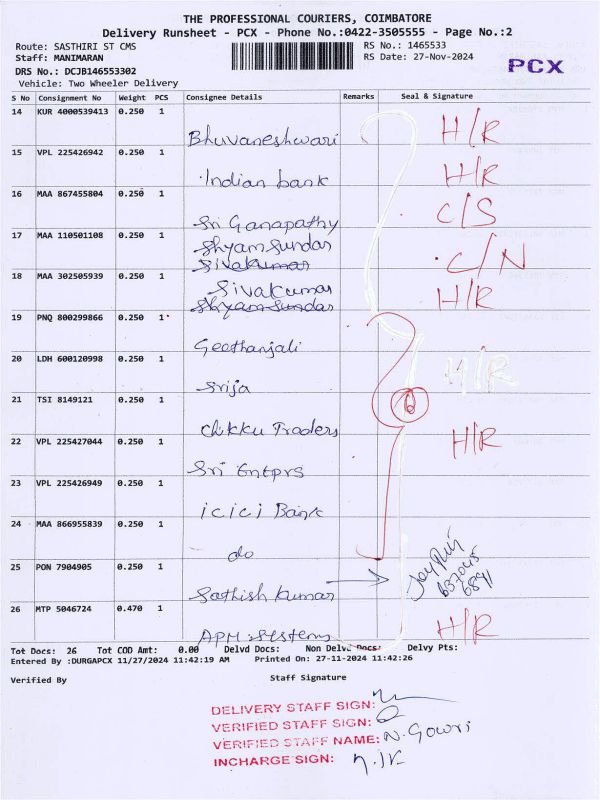 THE PROFESSIONAL COURIERS, COIMBATORE
Delivery Runsheet - PCX - Phone No.:0422-3505555 - Page No.:2
Route: SASTHIRI ST CMS
Staff: MANIMARAN
DRS No.: DCJB146553302
Vehicle: Two Wheeler Delivery
RS No.: 1465533
RS Date: 27-Nov-2024
PCX
S No Consignment No Weight PCS Consignee Details Remarks Seal & Signature
14 KUR 4000539413 0.250 1 Bhuvaneshwari H/R
15 VPL 225426942 0.250 1 Indian bank H/R
16 MAA 867455804 0.250 1 Sri Ganapathy C/S
17 MAA 110501108 0.250 1 Shyam Sundar C/N
Sivakumar
18 MAA 302505939 0.250 1 Sivakumar H/R
Shyam Sundar
19 PNQ 800299866 0.250 1 Geethanjali
20 LDH 600120998 0.250 1 Srija H/R
21 TSI 8149121 0.250 1 Chikku Traders
22 VPL 225427044 0.250 1 Sri Entprs H/R
23 VPL 225426949 0.250 1 icici Bank
24 MAA 866955839 0.250 1 do
25 PON 7904905 0.250 1 Sathish Kumar
26 MTP 5046724 0.470 1 APM Systems H/R
Tot Docs: 26 Tot COD Amt: 0.00 Delvd Docs: Non Delvd Docs: Delvy Pts:
Entered By :DURGAPCX 11/27/2024 11:42:19 AM Printed On: 27-11-2024 11:42:26
Verified By Staff Signature
DELIVERY STAFF SIGN:
VERIFIED STAFF SIGN:
VERIFIED STAFF NAME: N. Gowri
INCHARGE SIGN: